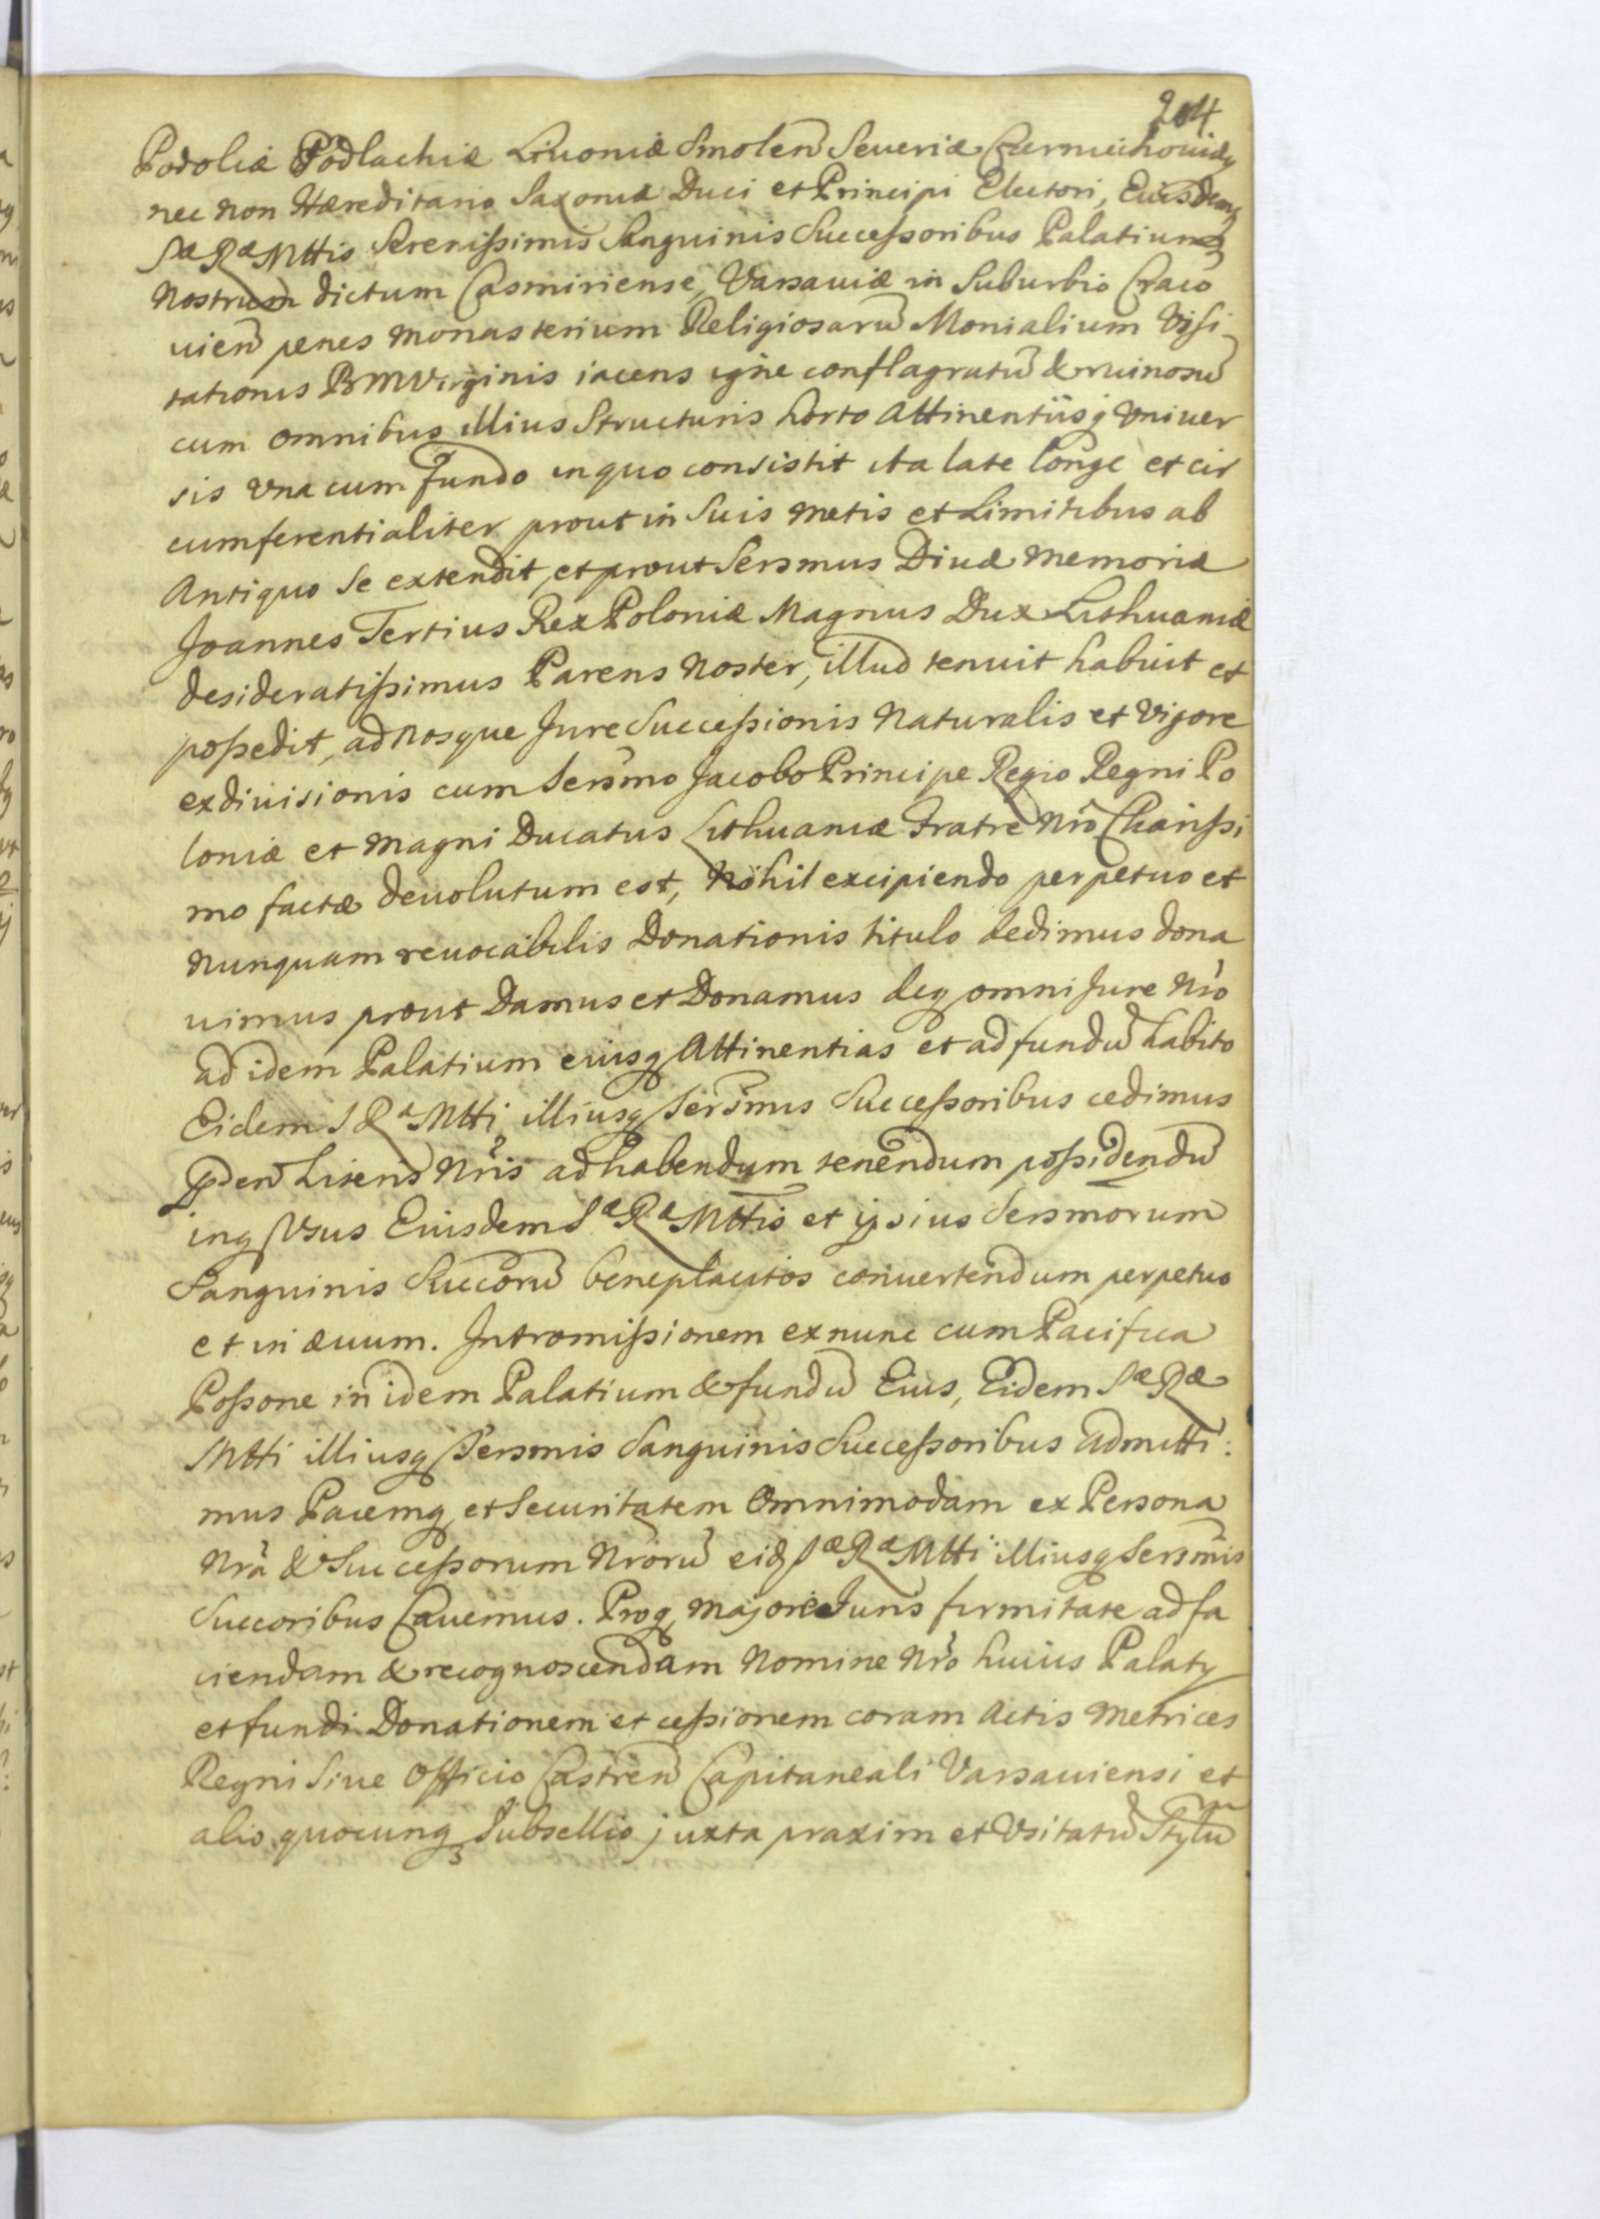 204
Podoliæ Podlachiæ Livoniæ Smolen Severiæ Czerniechoviæq
nec non Hæreditario Saxoniæ Duci et Principi Electori, Eiusdemq
Sæ Ræ Mttis Serenissimis Sanguinis Successoribus Palatium
Nostrum dictum Casmiriense, Varsaviæ in Suburbio Craco
vien penes Monasterium Religiosarū Monialium Visi
tationis BMVirginis iacens igne conflagratū & ruinosū
cum omnibus illius Structuris horto Attinentiisq Univer
sis una cum fundo in quo consistit ita late longe et cir
cumferentialiter prout in Suis metis et Limitibus ab
Antiquo Se extendit, et prout Sersmus Divæ Memoriæ
Joannes Tertius Rex Poloniæ Magnus Dux Lithuaniæ
desideratissimus Parens Noster, illud tenuit habuit et
possedit, ad Nosque Jure Successionis Naturalis et Vigore
exdivisionis cum Sersmo Jacobo Principe Regio Regni Po
loniæ et Magni Ducatus Lithuaniæ Fratre Nro Charissi
mo factæ devolutum est, Nihil excipiendo perpetuo et
Nunquam revocabilis Donationis titulo dedimus dona
vimus prout Damus et Donamus deq omni Jure Nro
ad idem Palatium eiusq Attinentias et ad fundū habito
Eidem S Ra Mtti illiusq Sersmis Successoribus cedimus
Pden Literis Nris ad habendum tenendum possidendū
inq Usus Eiusdem Sæ Ræ Mttis et ipsius Sersmorum
Sanguinis Succorū beneplacitos convertendum perpetuo
et in ævum. Intromissionem ex nunc cum Pacifica
Possone in idem Palatium & fundū Eius, Eidem Sæ Ræ
Mtti illiusq Sersmis Sanguinis Successoribus admitti:
mus Pacemq et Securitatem Omnimodam ex Persona
Nra & Successorum Nrorū eid Sæ Ræ Mtti illiusq Sersmis
Succoribus Cavemus. Proq Majore Juris firmitate ad fa
ciendam & recognoscendam Nomine Nro huius Palaty
et fundi Donationem et cessionem coram Actis Metrices
Regni Sive Officio Castren Capitaneali Varsaviensi et
alio quocunq Subsellio juxta praxim et Usitatū Stylū